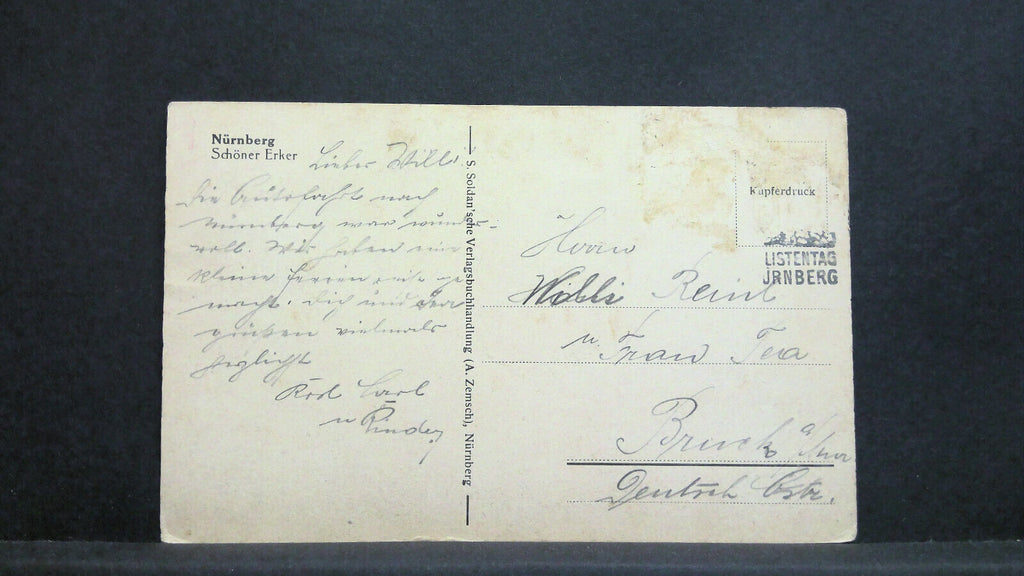 Nürnberg
Schöner Erker
Lieber Willi
die Autofahrt nach
Nürnberg war wunder-
voll. Wir haben eine
kleine Ferien ge-
macht. Dich und Tea
grüßen vielmals
herzlichst
Carl
u Kinder
S. Soldan'sche Verlagsbuchhandlung (A. Zemsch), Nürnberg
Kupferdruck
LISTENTAG
ÜRNBERG
Herrn
Willi Reinl
u. Frau Tea
Bruck a/Mur
Deutsch Östr.